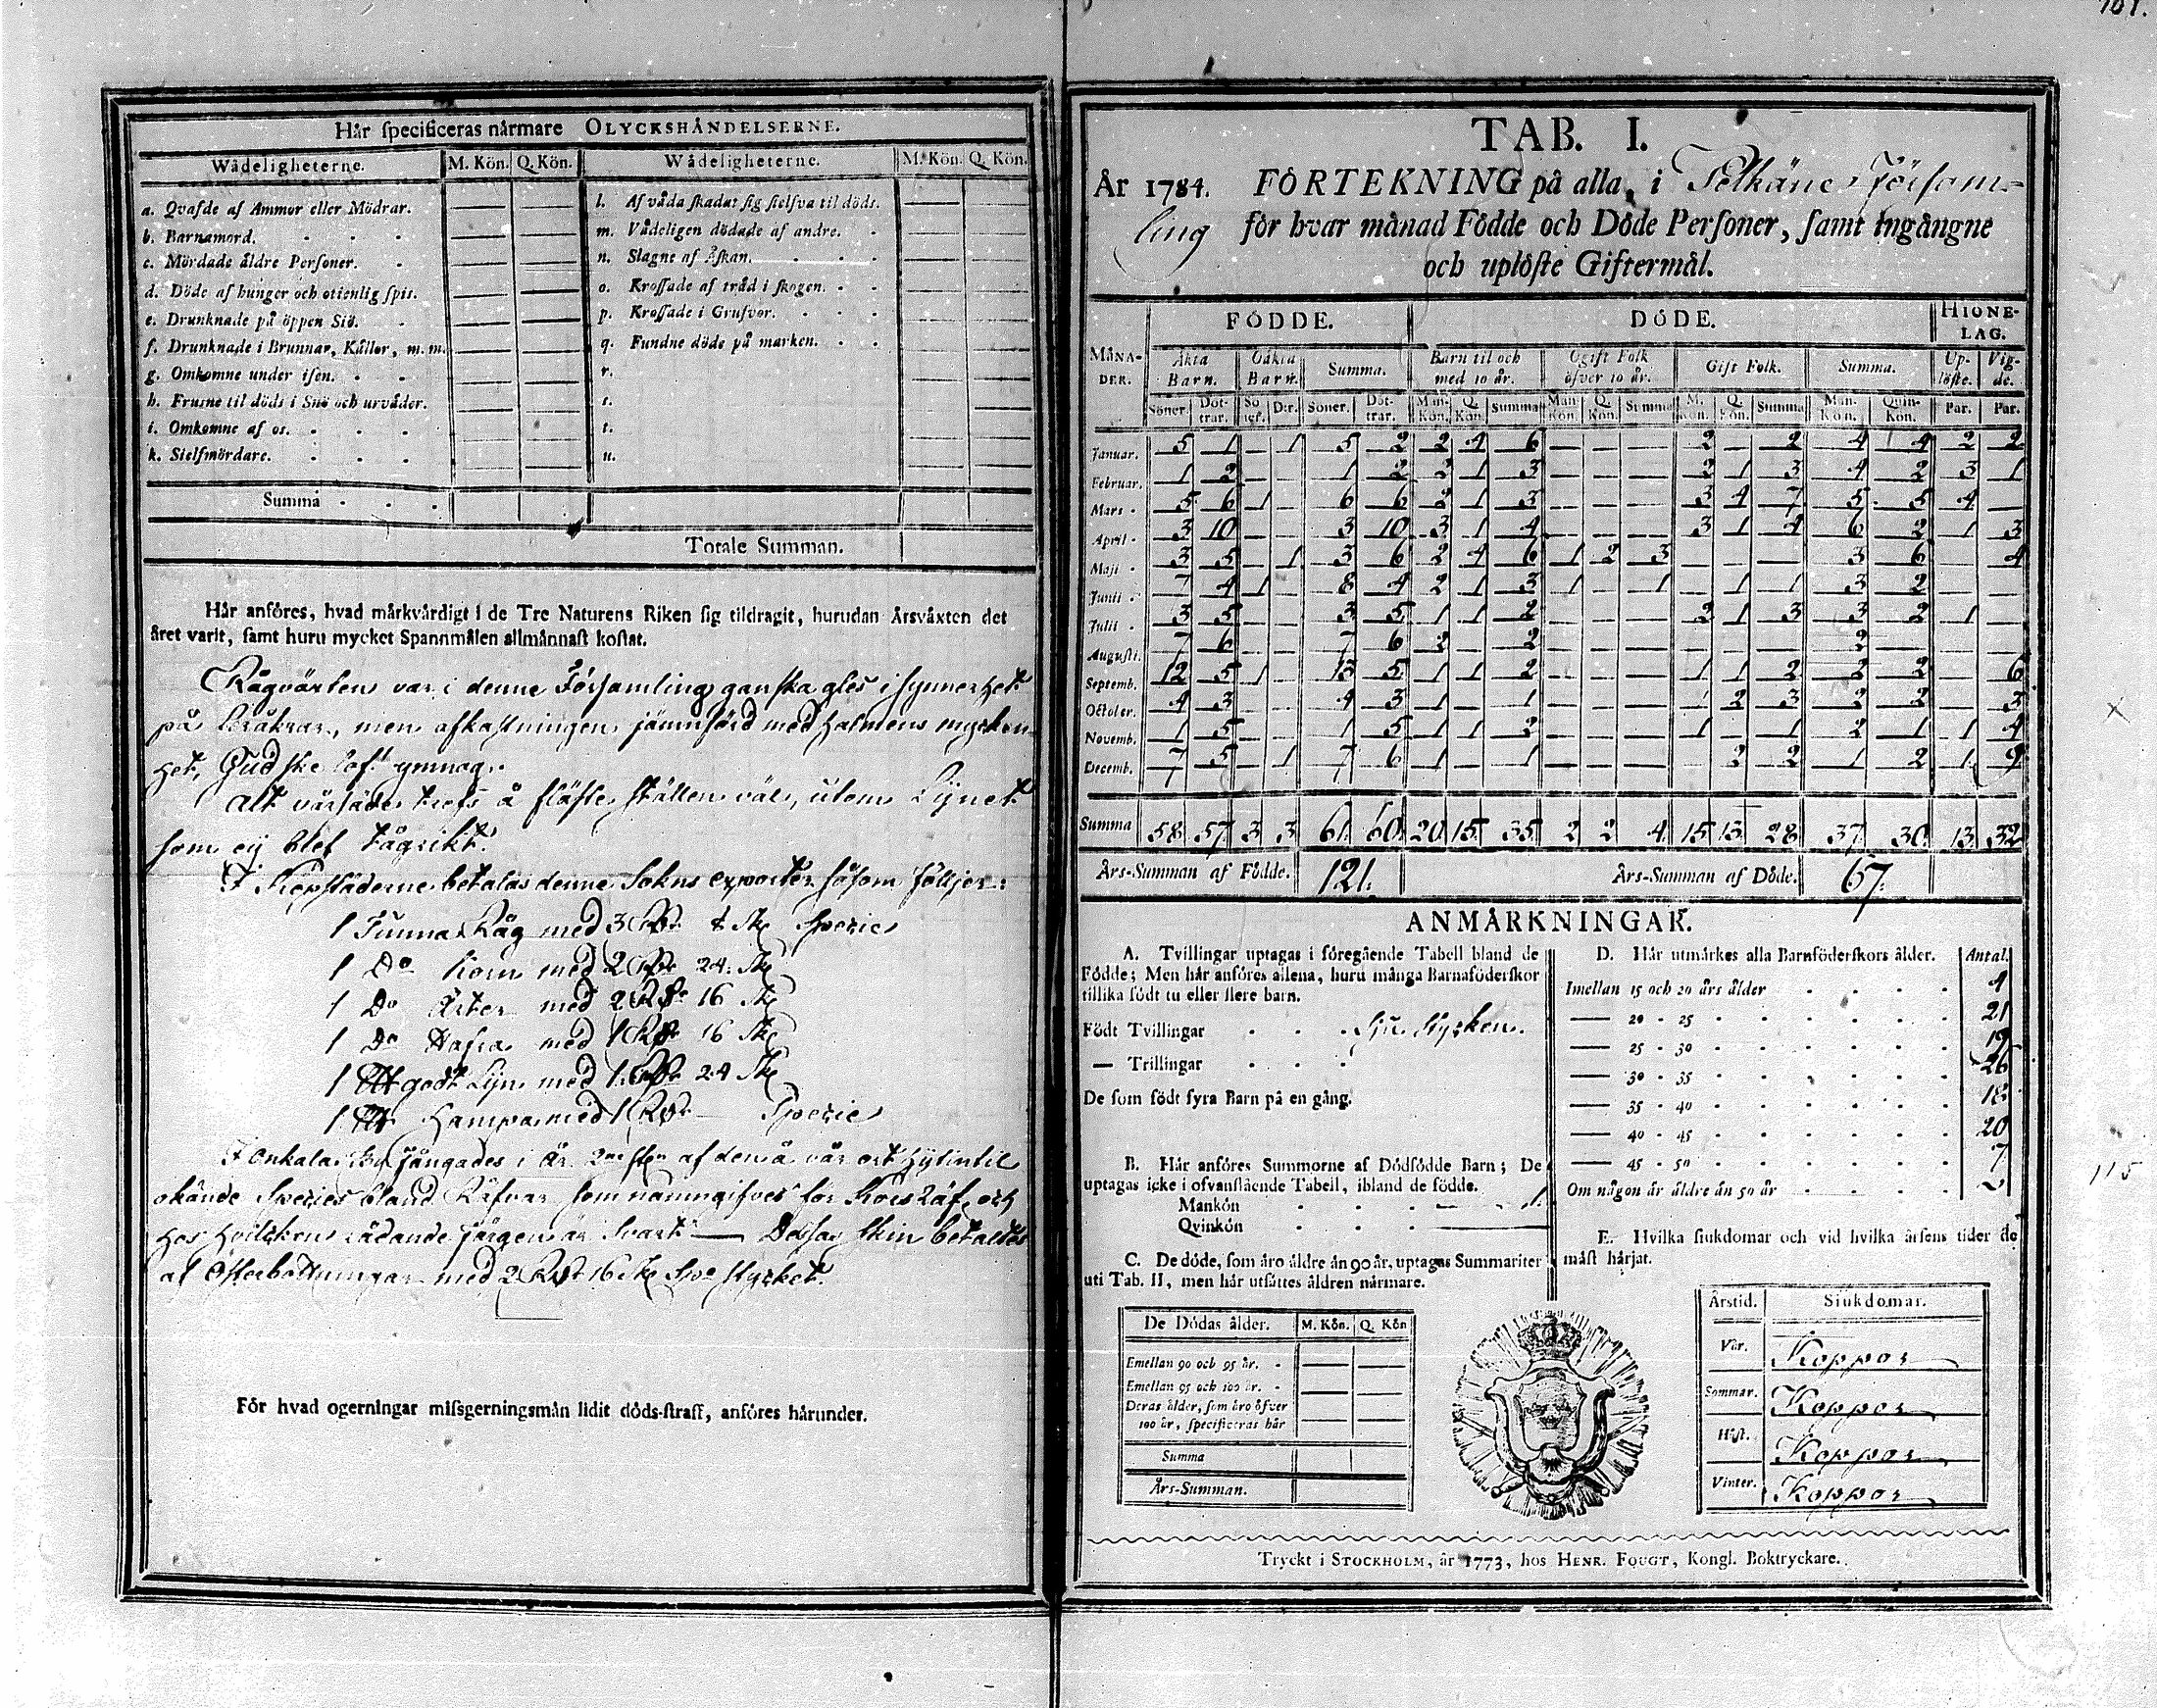 101.
Hår specificeras nårmare OLYCKSHÅNDELSERNE.
Wådeligheterne. M. Kön. Q. Kön. Wådeligheterne. M. Kön. Q. Kön.
a. Qvafde af Ammor eller Mödrar. — —
b. Barnamord. — —
c. Mördade åldre Personer. — —
d. Döde af hunger och otienlig spis. — —
e. Drunknade på öppen Siö. — —
f. Drunknade i Brunnar, Kållor, m. m. — —
g. Omkomne under isen. — —
h. Frusne til döds i Snö och urvåder. — —
i. Omkomne af os. — —
k. Sielfmördare. — —
l. Af våda skadat sig sielfva til döds. — —
m. Vådeligen dödade af andre. — —
n. Slagne af Åskan. — —
o. Krossade af tråd i skogen. — —
p. Krossade i Grufvor. — —
q. Fundne döde på marken. — —
r. — —
s. — —
t. — —
u. — —
Summa
Totale Summan.
Hår anföres, hvad mårkvårdigt i de Tre Naturens Riken sig tildragit, hurudan Årsvåxten det
året varit, samt huru mycket Spannmålen allmånnast kostat.
Rågväxten var i denne Församling ganska gles i synnerhet
på åkrar, men afkastningen jämnförd med halmens mycken
het, Gud ske lof! ymnog.
Alt vårsäde trefs å fläste ställen väl, utom Lijnet
som eij blef tågrikt.
I Köpstäderne betalas denne Sokns exporter såsom följer:
1 Tunna Råg med 3 Rdr Sk Specie
1 Do Korn med 2 Rdr 24 Sk
1 Do Ärter med 2 Rdr 16 Sk
1 Do Hafra med 1 Rdr 16 Sk
1 godt Lijn med 1 Rdr 24 Sk
1 Hampa med 1 Rdr — Specie
I Onkala By fångades i År af den å vår ort hijtintil
okände Species bland Räfvar som namngifves för Kors Räf, och
hos hvilken rådande färgen är Svart — Dessas skin betaltes
af Österbottningar med 2 Rdr 16 Sk Spe stycket.
För hvad ogerningar missgerningsmån lidit döds-straff, anföres hårunder.
TAB. I.
År 1784. FÖRTEKNING på alla, i Pelkäne Försam=
ling för hvar månad Födde och Döde Personer, samt ingångne
och uplöste Giftermål.
FÖDDE. DÖDE. HIONE-LAG.
MÅNA-DER. Åkta Barn. Oåkta Barn. Summa. Barn til och med 10 år. Ogift Folk öfver 10 år. Gift Folk. Summa. Up-löste. Vig-de.
Söner. Döt-trar. Sö-ner. Dir. Söner. Döt-trar. Man-Kön. Q. Kön. Summa Man-Kön. Q. Kön. Summa M. Kön. Q. Kön. Summa Man-Kön. Quin-Kön. Par. Par.
Januar. 5 1 — 1 5 2 2 4 6 — — — 2 — 2 4 4 2 2
Februar. 1 2 — — 1 2 2 1 3 — — — 2 1 3 4 2 3 1
Mars 5 6 1 — 6 6 2 1 3 — — — 3 4 7 5 5 4 —
April 3 10 — — 3 10 3 1 4 — — — 3 1 4 6 2 1 3
Maji 3 5 — 1 3 6 2 4 6 1 2 3 — — — 3 6 — 4
Junii 7 4 1 — 8 4 2 1 3 1 — 1 — 1 1 3 2 — —
Julii 3 5 — — 3 5 1 1 2 — — — 2 1 3 3 2 1 —
Augusti. 7 6 — — 7 6 2 — 2 — — — — — — 2 — — —
Septemb. 12 5 1 — 13 5 1 1 2 — — — 1 1 2 2 2 — 6
Octoler. 4 3 — — 4 3 1 — 1 — — — 1 2 3 2 2 — 3
Novemb. 1 5 — — 1 5 1 1 2 — — — 1 — 1 2 1 1 4
Decemb. 7 5 — 1 7 6 1 — 1 — — — — 2 2 1 2 1 9
Summa 58 57 3 3 61 60 20 15 35 2 2 4 15 13 28 37 30 13 32
Års-Summan af Födde. 121. Års-Summan af Döde. 67.
ANMÅRKNINGAR.
A. Tvillingar uptagas i föregående Tabell bland de
Födde; Men hår anföres allena, huru många Barnaföderskor
tillika födt tu eller flere barn.
Födt Tvillingar Sju stycken.
— Trillingar
De som födt fyra Barn på en gång.
B. Hår anföres Summorne af Dödfödde Barn; De
uptagas icke i ofvanstående Tabell, ibland de födde.
Mankön — 1.
Qvinkön —
C. De döde, som åro åldre ån 90 år, uptagas Summariter
uti Tab. II, men hår utsåttes åldren nårmare.
De Dödas ålder. M. Kön. Q. Kön
Emellan 90 och 95 år. — —
Emellan 95 och 100 år. — —
Deras ålder, som åro öfver
100 år, specificeras hår — —
Summa
Års-Summan.
D. Hår utmårkes alla Barnföderskors ålder. Antal.
Imellan 15 och 20 års ålder 4
— 20 - 25 21
— 25 - 30 19
— 30 - 35 26
— 35 - 40 18
— 40 - 45 20
— 45 - 50 7
Om någon år åldre ån 50 år
115
E. Hvilka siukdomar och vid hvilka årsens tider de
måst hårjat.
Årstid. Siukdomar.
Vår. Koppor
Sommar. Koppor
Höst. Koppor
Vinter. Koppor
Tryckt i STOCKHOLM, år 1773, hos HENR. FOUGT, Kongl. Boktryckare.